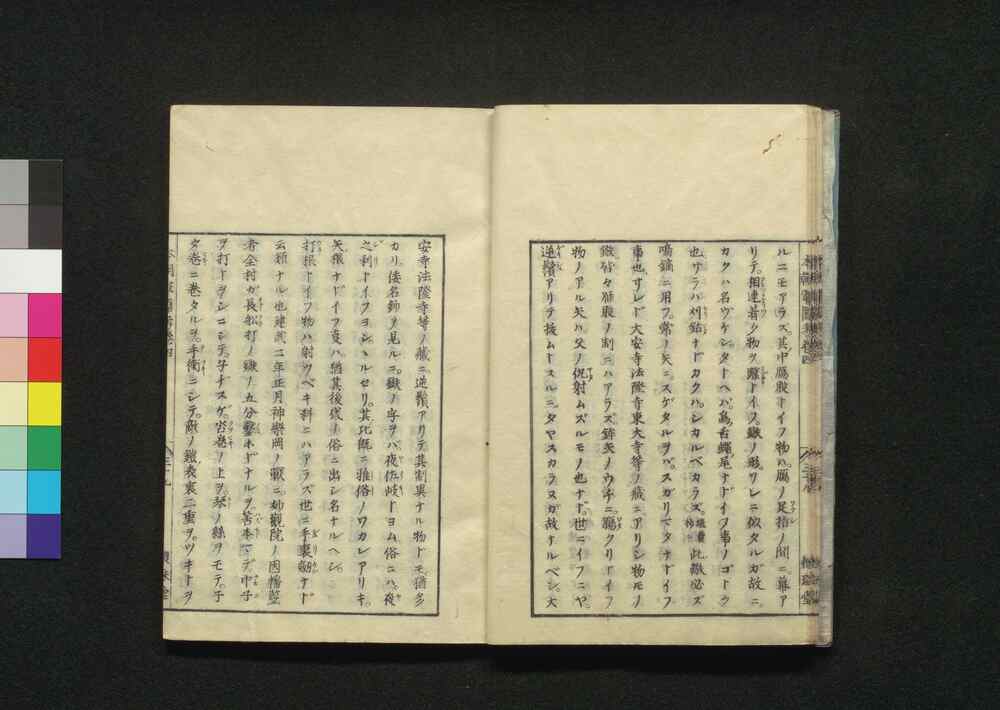 ルニモアラズ。其中鴈股トイフ物ハ。鴈ノ足指ノ間ニ。幕ア
リテ。相連著ク物ヲ蹼トイフ。鏃ノ形ワレニ似タルガ故ニ。
カクハ名ヅケシナトヘハ。鳥舌蠅尾ナドイフ事ノゴトク
也。サラハ刈鈷ナドカクハ。シカルベカラズ。此鏃必ズ
鳴鏑ニ用フ。常ノ矢ニスゲタルヲハ。スガリマタナドイフ
事也。サレド大安寺法隆寺東大寺等ノ蔵ニアリシ物モノ
鏃皆々鴈股ノ制ニハアラズ。鉾矢ノウチニ。クリトイフ
物ノアル矢ハ。父ノ仇射ムズルモノ也ナド。世ニイフニヤ。
逆鬚アリテ抜ムトスルニ。タヤスカラヌガ故ナルベシ。大
安寺法隆寺等ノ蔵ニ逆鬚アリテ其制異ナル物ドモ。猶多
カリ。倭名鈔ヲ見ルニ。鏃ノ字ヲバ夜佐岐トヨム。俗ニハ。夜
之利トイフヨシシルセリ。其比既ニ雅俗ノワカレアリキ。
矢根ナドイフ事ハ。猶其後残ノ俗ニ出シ名ナルヘシ。
打根トイフ物ハ射ツベキ料ニハアラズ。世ニ手裏剱ナド
云類ナル也。建武二年正月神樂岡ノ戰ニ。妙觀院ノ因幡竪
者全村ガ長船打ノ鏃ノ五分鑿ホドナルヲ。筈本マデ中子
ヲ打トヲシニシテ。子ナスゲ。沓巻ノ上ヲ。琴ノ絲ヲモテ。子
タ巻ニ巻タルヲ。手衝ニシテ。敵ノ鎧表裏二重ヲ。ツキトヲ